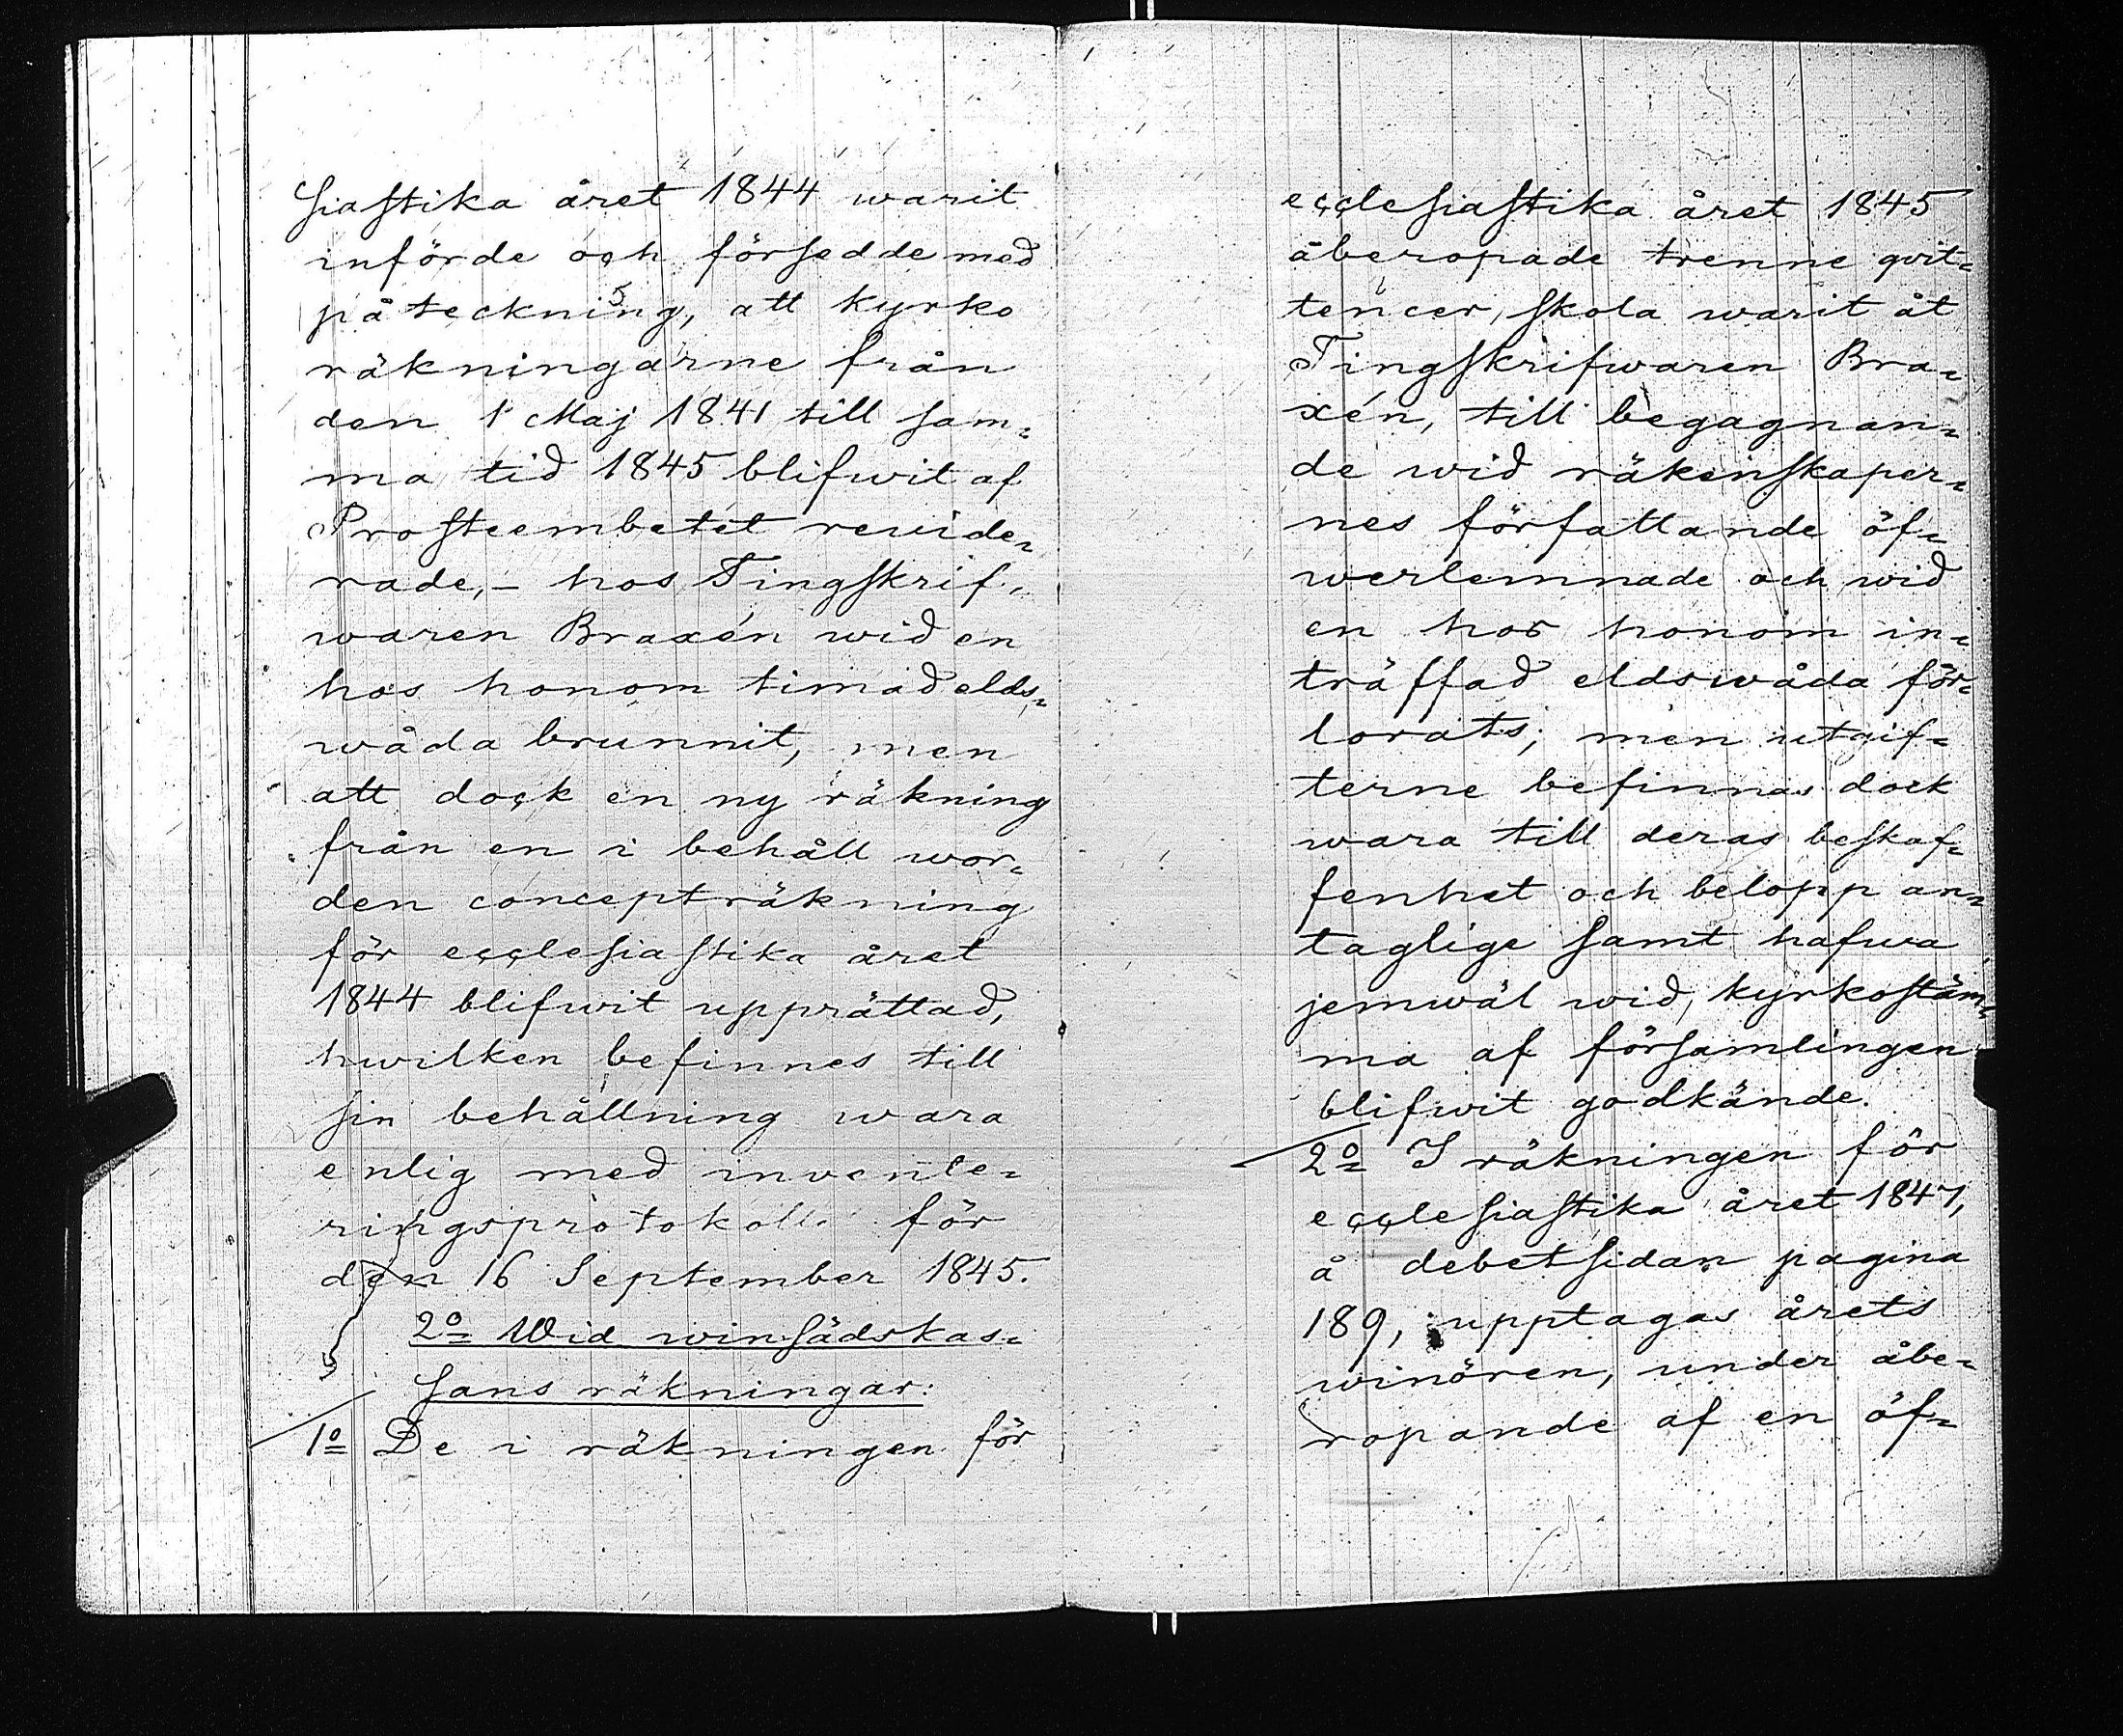 siastika året 1844 warit
införde och försedde med
påteckning, att kyrko
räkningarne från
den 1 Maj 1841 till sam=
ma tid 1845 blifwit af
Prosteembetet revide=
rade,- hos Tingskrif=
waren Braxén wid en
hos honom timad elds=
wåda brunnit, men
att dock en ny räkning
från en i behåll wor=
den concepträkning
för ecclesiastika året
1844 blifwit upprättad,
hwilken befinnes till
sin behållning wara
enlig med invente=
ringsprotokoll för
den 16 September 1845.
2o= Wid winsädskas=
sans räkningar:
1o= De i räkningen för
ecclesiastika året 1845
åberopade trenne qvit=
tencer, skola warit åt
Tingskrifwaren Bra=
xén, till begagnan=
de wid räkenskaper=
nes författande öf=
werlemnade och wid
en hos honom in=
träffad eldswåda för=
lorats; men utgif=
terne befinnas dock
wara till deras beskaf=
fenhet och belopp an=
taglige samt hafwa
jemwäl wid kyrkostäm=
ma af församlingen
blifwit godkände.
2o= I räkningen för
ecclesiastika året 1847,
å debetsidan pagina
189, upptagas årets
winören, under åbe=
ropande af en öf=